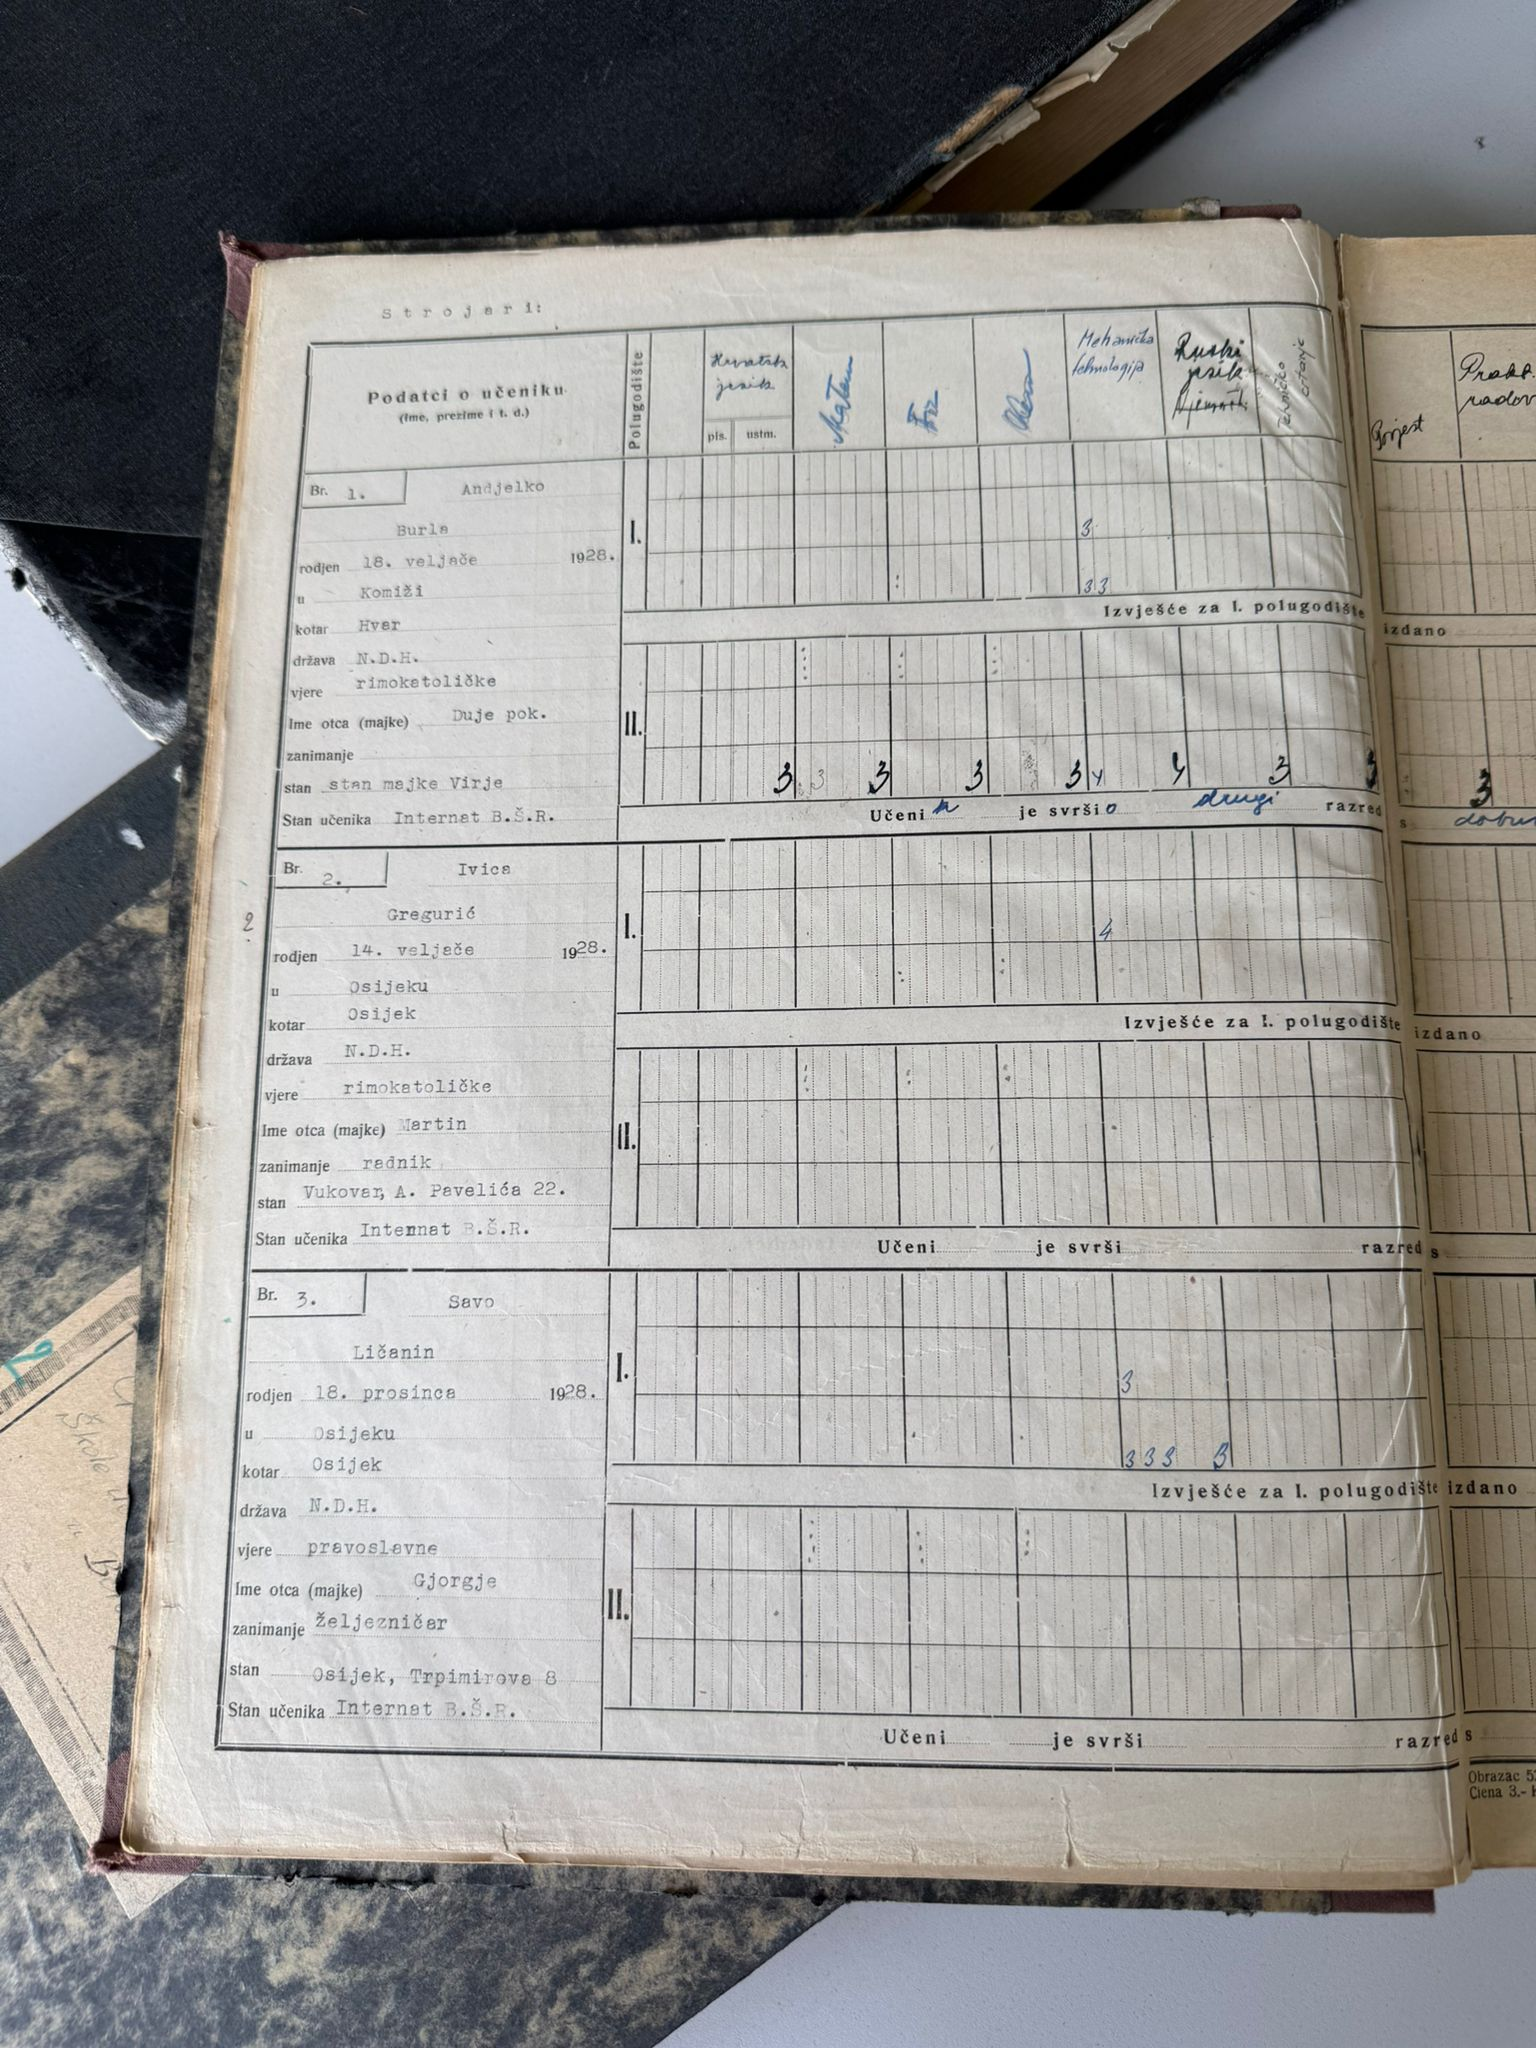 Strojari:
Podatci o učeniku
(ime, prezime i t. d.)
Polugodište
Hrvatski jezik
pis. ustm.
Matem
Fiz
Kem
Mehanička tehnologija
Ruski jezik
Njemački
Tehničko crtanje
Povjest
Prakt. radovi
Br. 1. Andjelko
Burla
rodjen 18. veljače 1928.
u Komiži
kotar Hvar
država N.D.H.
vjere rimokatoličke
Ime otca (majke) Duje pok.
zanimanje
stan stan majke Virje
Stan učenika Internat B.Š.R.
I.
3
33
Izvješće za I. polugodište izdano
II.
3 3 3 3 3 4 4 3 3 3
Učenik je svršio drugi razred s
Br. 2. Ivica
2
Gregurić
rodjen 14. veljače 1928.
u Osijeku
kotar Osijek
država N.D.H.
vjere rimokatoličke
Ime otca (majke) Martin
zanimanje radnik
stan Vukovar, A. Pavelića 22.
Stan učenika Internat B.Š.R.
I.
4
Izvješće za I. polugodište izdano
II.
Učeni je svrši razred s
Br. 3. Savo
Ličanin
rodjen 18. prosinca 1928.
u Osijeku
kotar Osijek
država N.D.H.
vjere pravoslavne
Ime otca (majke) Gjorgje
zanimanje željezničar
stan Osijek, Trpimirova 8
Stan učenika Internat B.Š.R.
I.
3
3 3 3 3
Izvješće za I. polugodište izdano
II.
Učeni je svrši razred s
Obrazac
Ciena 3.-
2
Škole u